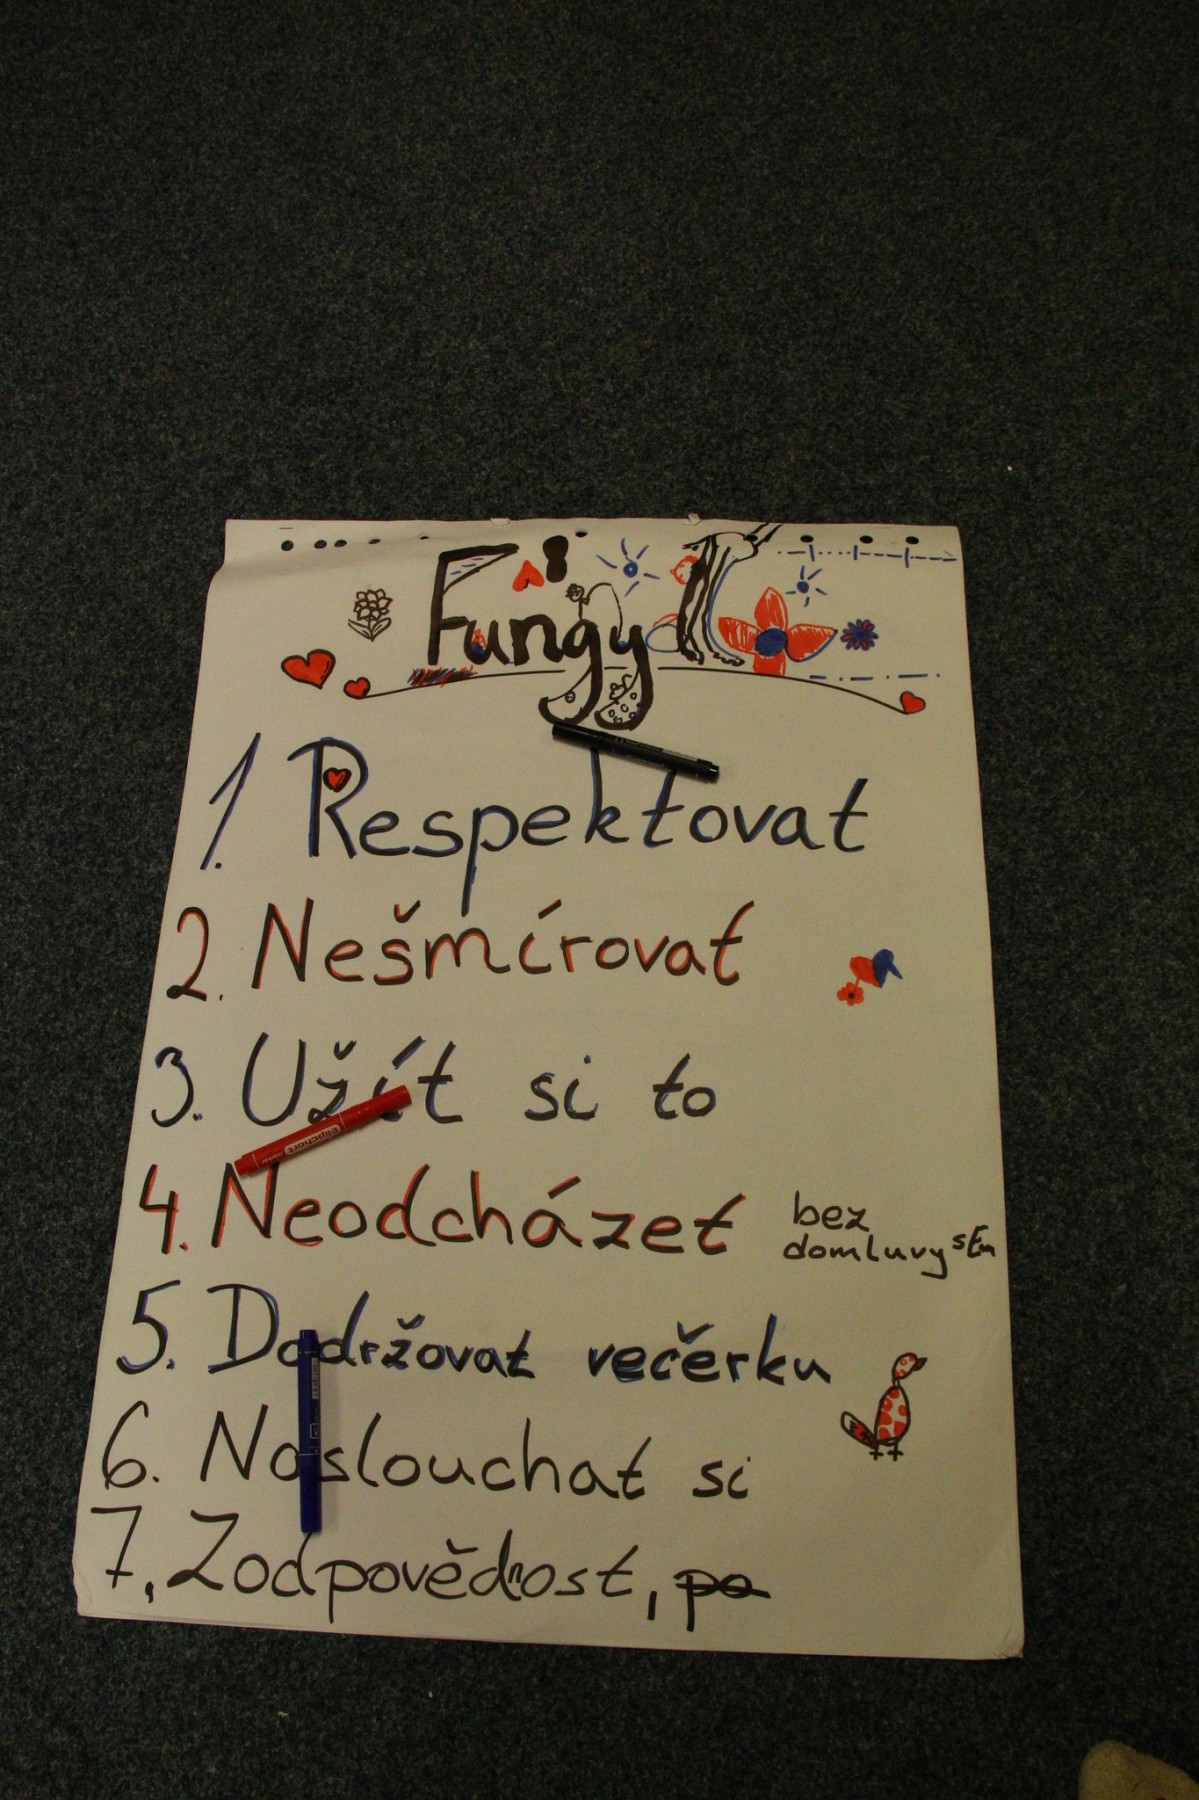 Fungy
1. Respektovat
2. Nešmírovat
3. Užít si to
4. Neodcházet bez
domluvy
5. Dodržovat večerku
6. Naslouchat si
7, Zodpovědnost, po
flipchart